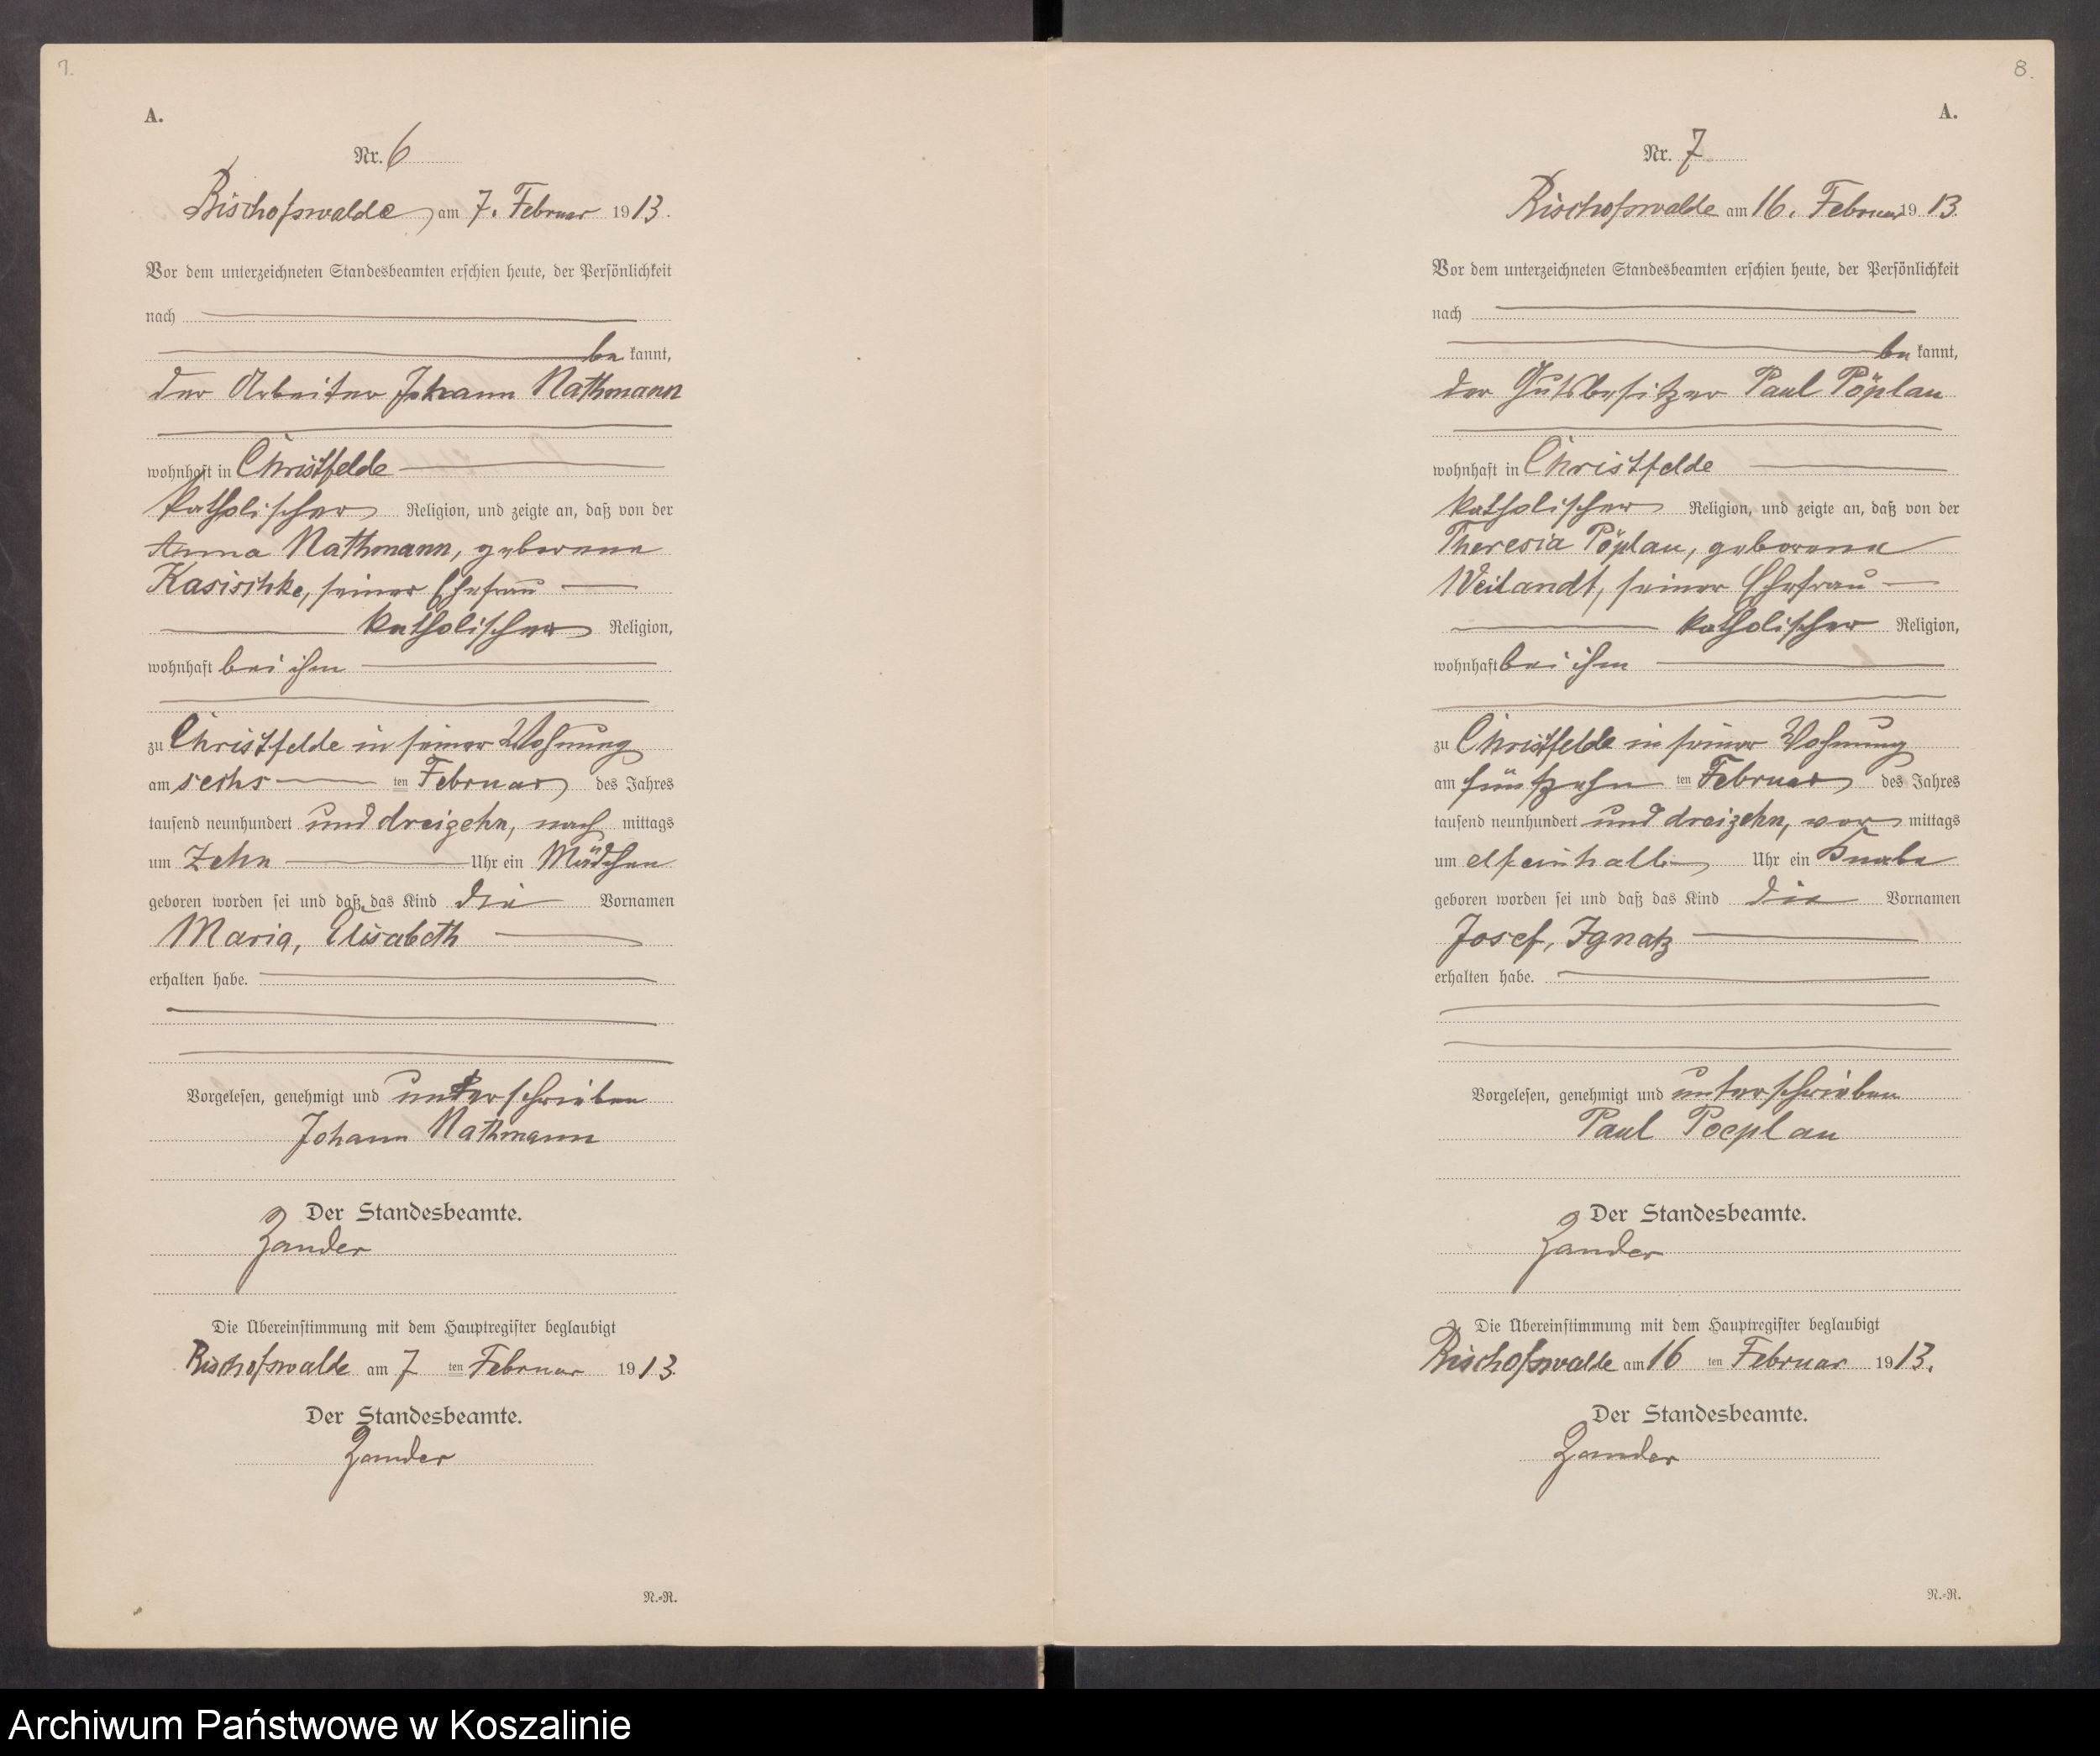 7.
A.
Nr. 6
Bischofswalde, am 7. Februar 1913.
Vor dem unterzeichneten Standesbeamten erschien heute, der Persönlichkeit
nach
be kannt,
der Arbeiter Johann Nathmann
wohnhaft in Christfelde
katholischer Religion, und zeigte an, daß von der
Anna Nathmann, geborene
Kasischke, seiner Ehefrau
katholischer Religion,
wohnhaft bei ihm
zu Christfelde in seiner Wohnung
am sechs ten Februar des Jahres
tausend neunhundert und dreizehn, nach mittags
um zehn Uhr ein Mädchen
geboren worden sei und daß das Kind die Vornamen
Maria, Elisabeth
erhalten habe.
Vorgelesen, genehmigt und unterschrieben
Johann Nathmann
Der Standesbeamte.
Zander
Die Übereinstimmung mit dem Hauptregister beglaubigt
Bischofswalde am 7 ten Februar 1913.
Der Standesbeamte.
Zander
N.=R.
8.
A.
Nr. 7
Bischofswalde am 16. Februar 1913.
Vor dem unterzeichneten Standesbeamten erschien heute, der Persönlichkeit
nach
be kannt,
der Gutsbesitzer Paul Pöplau
wohnhaft in Christfelde
katholischer Religion, und zeigte an, daß von der
Theresia Pöplau, geborene
Weilandt, seiner Ehefrau
katholischer Religion,
wohnhaft bei ihm
zu Christfelde in seiner Wohnung
am fünfzehn ten Februar des Jahres
tausend neunhundert und dreizehn, vor mittags
um elfeinhalb Uhr ein Knabe
geboren worden sei und daß das Kind die Vornamen
Josef, Ignatz
erhalten habe.
Vorgelesen, genehmigt und unterschrieben
Paul Poeplau
Der Standesbeamte.
Zander
Die Übereinstimmung mit dem Hauptregister beglaubigt
Bischofswalde am 16 ten Februar 1913.
Der Standesbeamte.
Zander
N.=R.
Archiwum Państwowe w Koszalinie